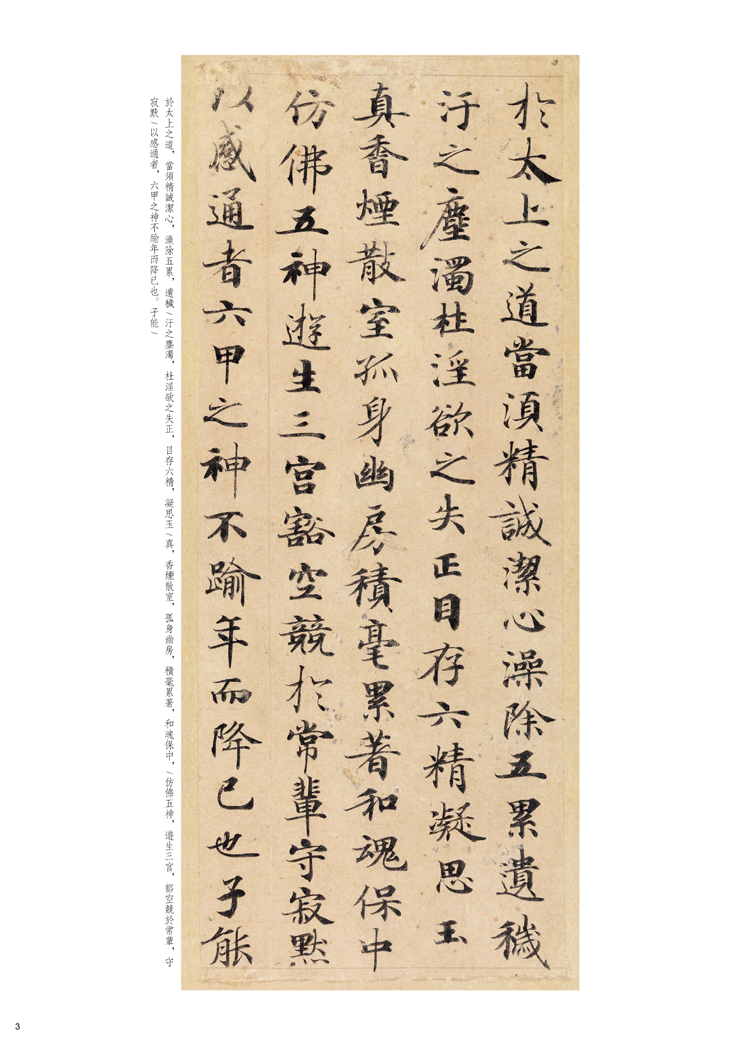 於太上之道當須精誠潔心澡除五累遺穢
汙之塵濁杜淫欲之失正目存六精凝思玉
真香煙散室孤身幽房積毫累著和魂保中
仿佛五神遊生三宮豁空競於常輩守寂默
以感通者六甲之神不踰年而降已也子能
於太上之道，當須精誠潔心，澡除五累，遺穢︱汙之塵濁，杜淫欲之失正，目存六精，凝思玉︱真，香煙散室，孤身幽房，積毫累著，和魂保中，︱仿佛五神，遊生三宮，豁空競於常輩，守
寂默︱以感通者，六甲之神不踰年而降已也。子能︱
3